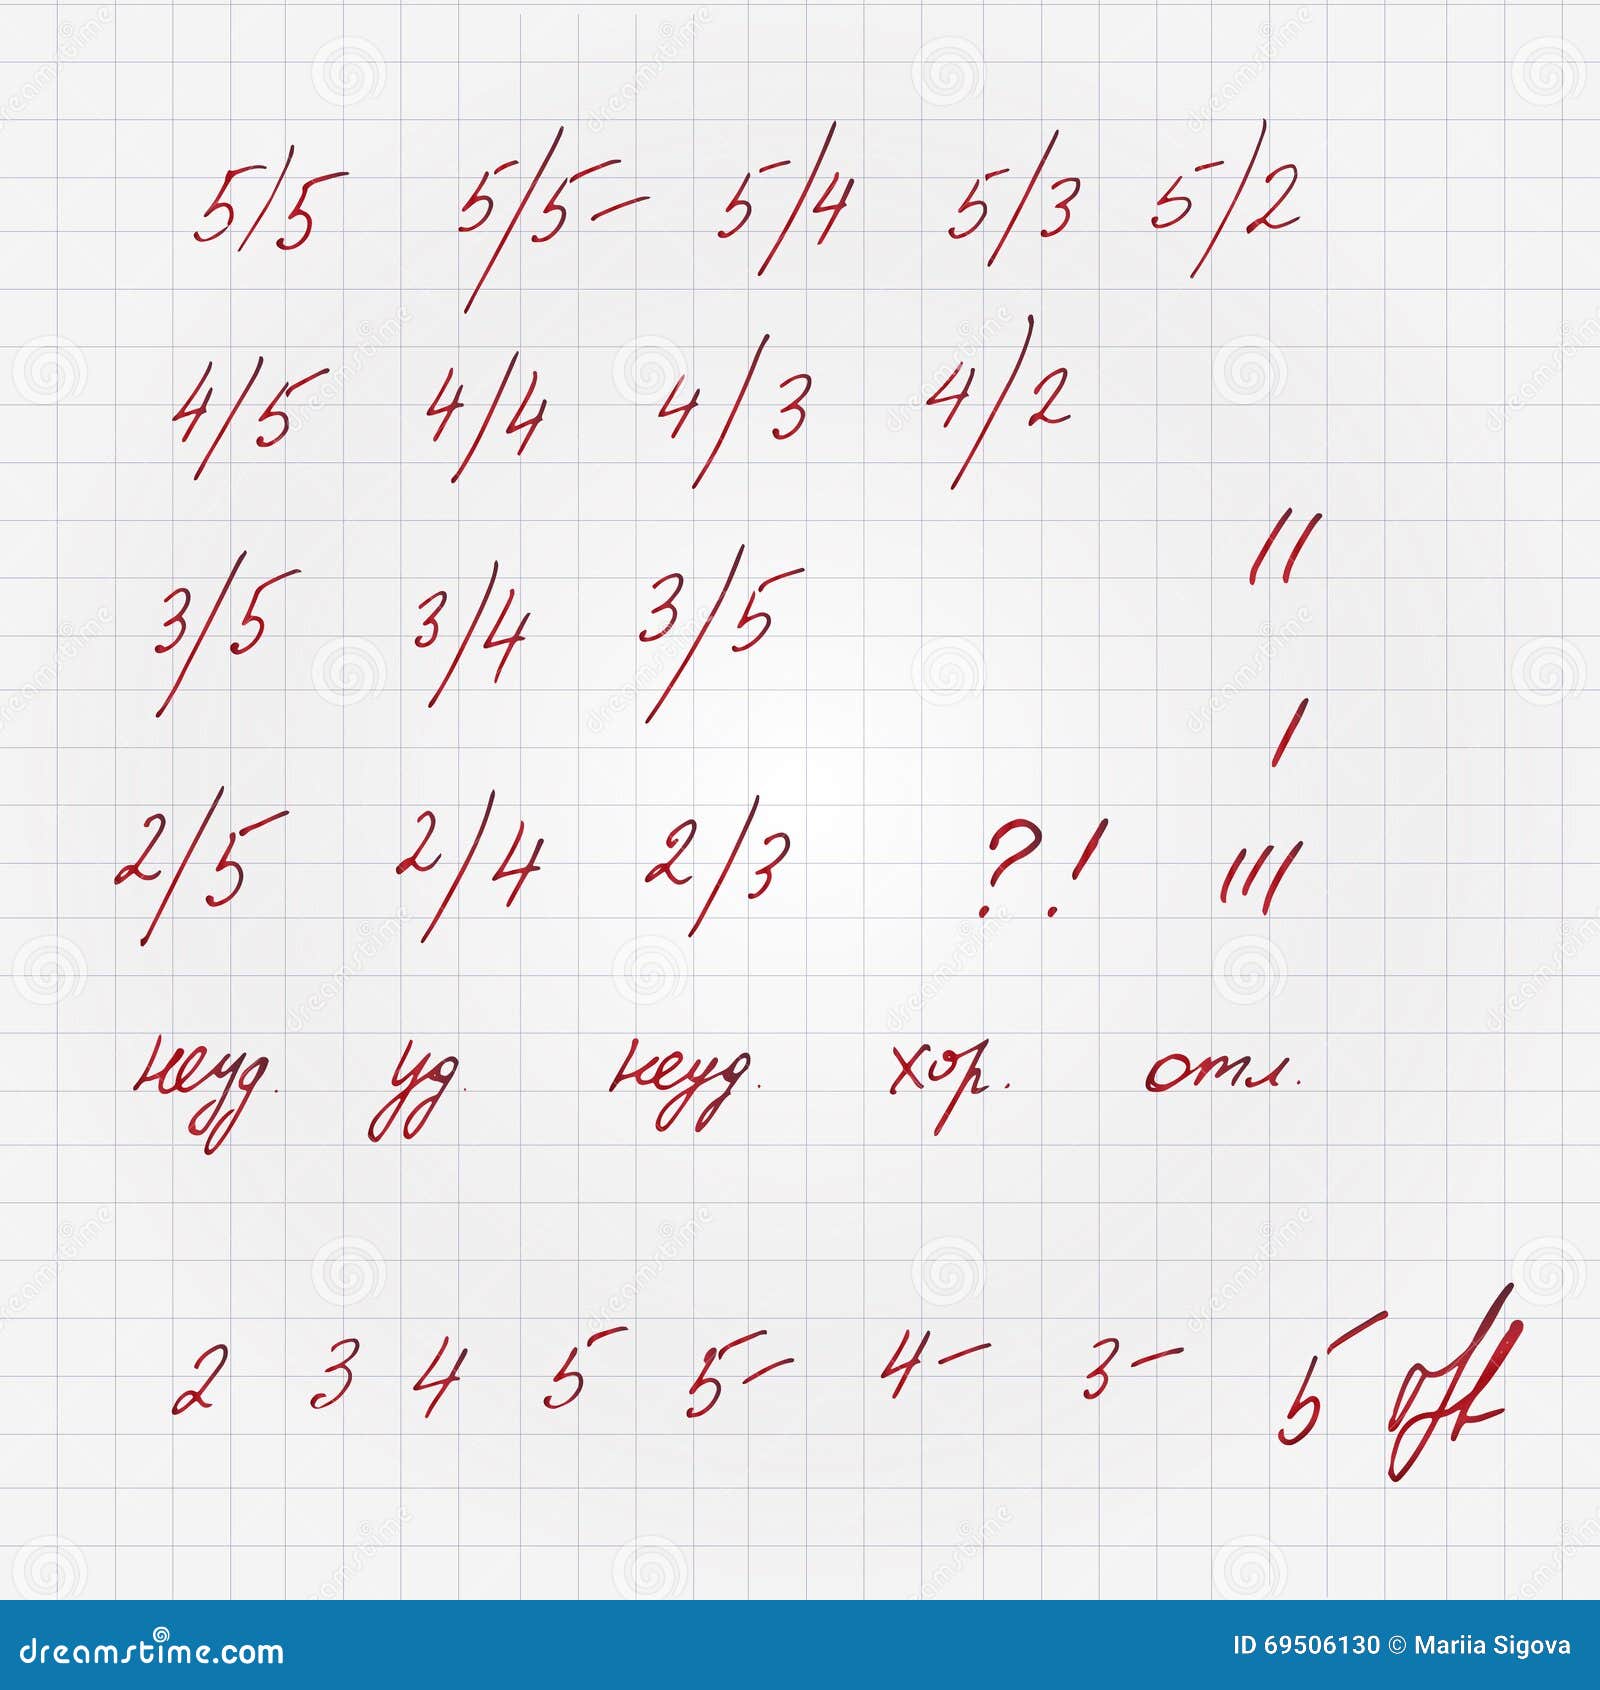 5/5 5/5- 5/4 5/3 5/2
4/5 4/4 4/3 4/2
//
3/5 3/4 3/5
/
2/5 2/4 2/3 ?! ///
неуд. уд. неуд. хор. отл.
2 3 4 5 5- 4- 3- 5
dreamstime.com ID 69506130 © Mariia Sigova